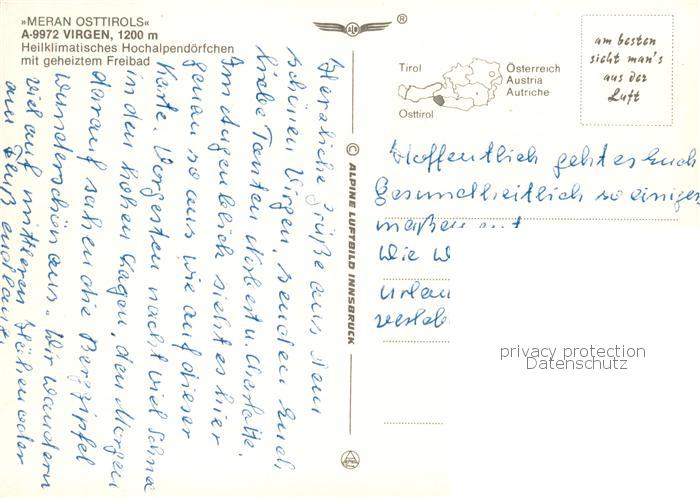 »MERAN OSTTIROLS«
A-9972 VIRGEN, 1200 m
Heilklimatisches Hochalpendörfchen
mit geheiztem Freibad
ALO
®
am besten
sieht man's
aus der
Luft
Tirol
Osttirol
Österreich
Austria
Autriche
© ALPINE LUFTBILD INNSBRUCK
Herzliche Grüße aus dem
schönen Virgen, senden Euch,
liebe Tanten Norbert u. Charlotte.
Im Augenblick sieht es hier
genau so aus wie auf dieser
Karte. Vorgestern nacht viel Schnee
in den hohen Lagen, den Morgen
darauf sahen die Berggipfel
wunderschön aus. Wir wandern
viel auf mittleren Höhen oder
am Fluß entlang.
Hoffentlich geht es Euch
Gesundheitlich so einiger
maßen gut
Wie w
Urlau
verleb
privacy protection
Datenschutz